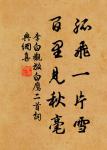 孤飛一片雪
百里見秋毫
李白觀放白鷹二首詞
與網喜